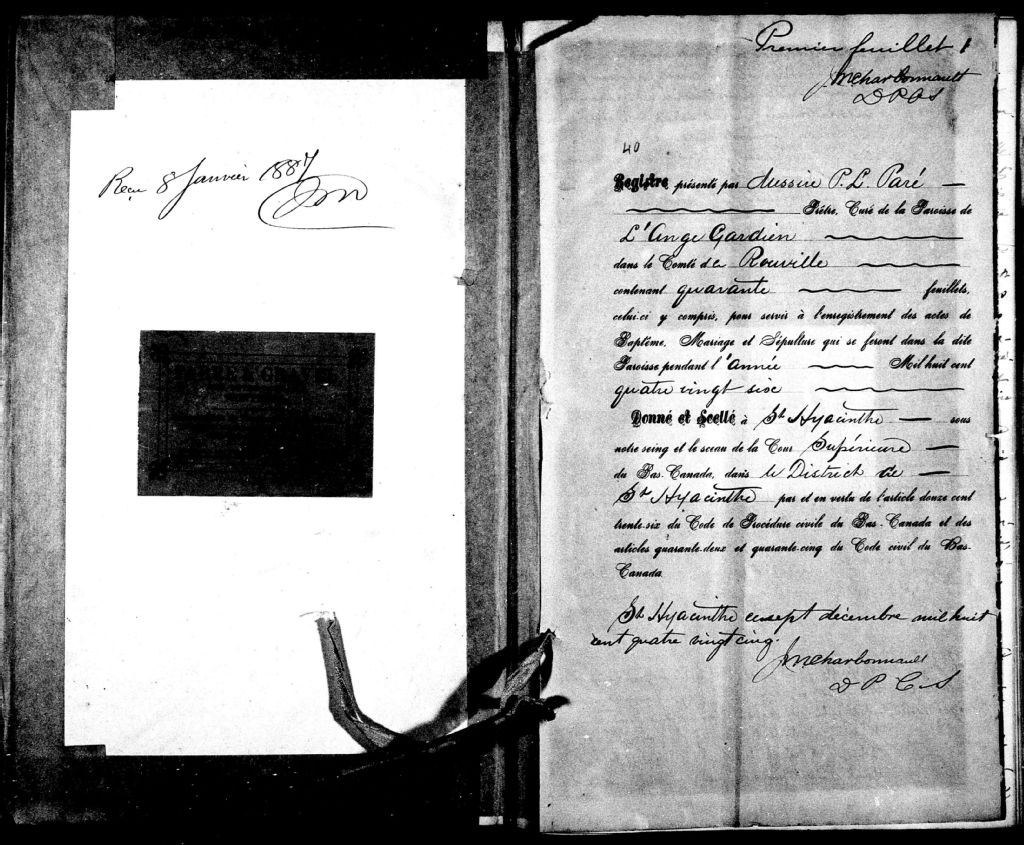 Recu 8 Janvier 1887
Premier feuillet 1
JNCharbonnault
D P C S
40
Registre présenté par Messire P. L. Paré
Prêtre, Curé de la Paroisse de
L'Ange Gardien
dans le Comté de Rouville
contenant quarante feuillets,
celui-ci y compris, pour servir à l'enregistrement des actes de
Baptême, Mariage et Sépulture qui se feront dans la dite
Paroisse pendant l'Année Mil huit cent
quatre vingt six
Donné et Scellé à St. Hyacinthe sous
notre seing et le sceau de la Cour Supérieure
du Bas-Canada, dans le District de
St Hyacinthe par et en vertu de l'article douze cent
trente-six du Code de Procédure civile du Bas-Canada et des
articles quarante-deux et quarante-cinq du Code civil du Bas-
Canada
St. Hyacinthe ce sept décembre mil huit
cent quatre vingt cinq.
JNCharbonnault
D P C S